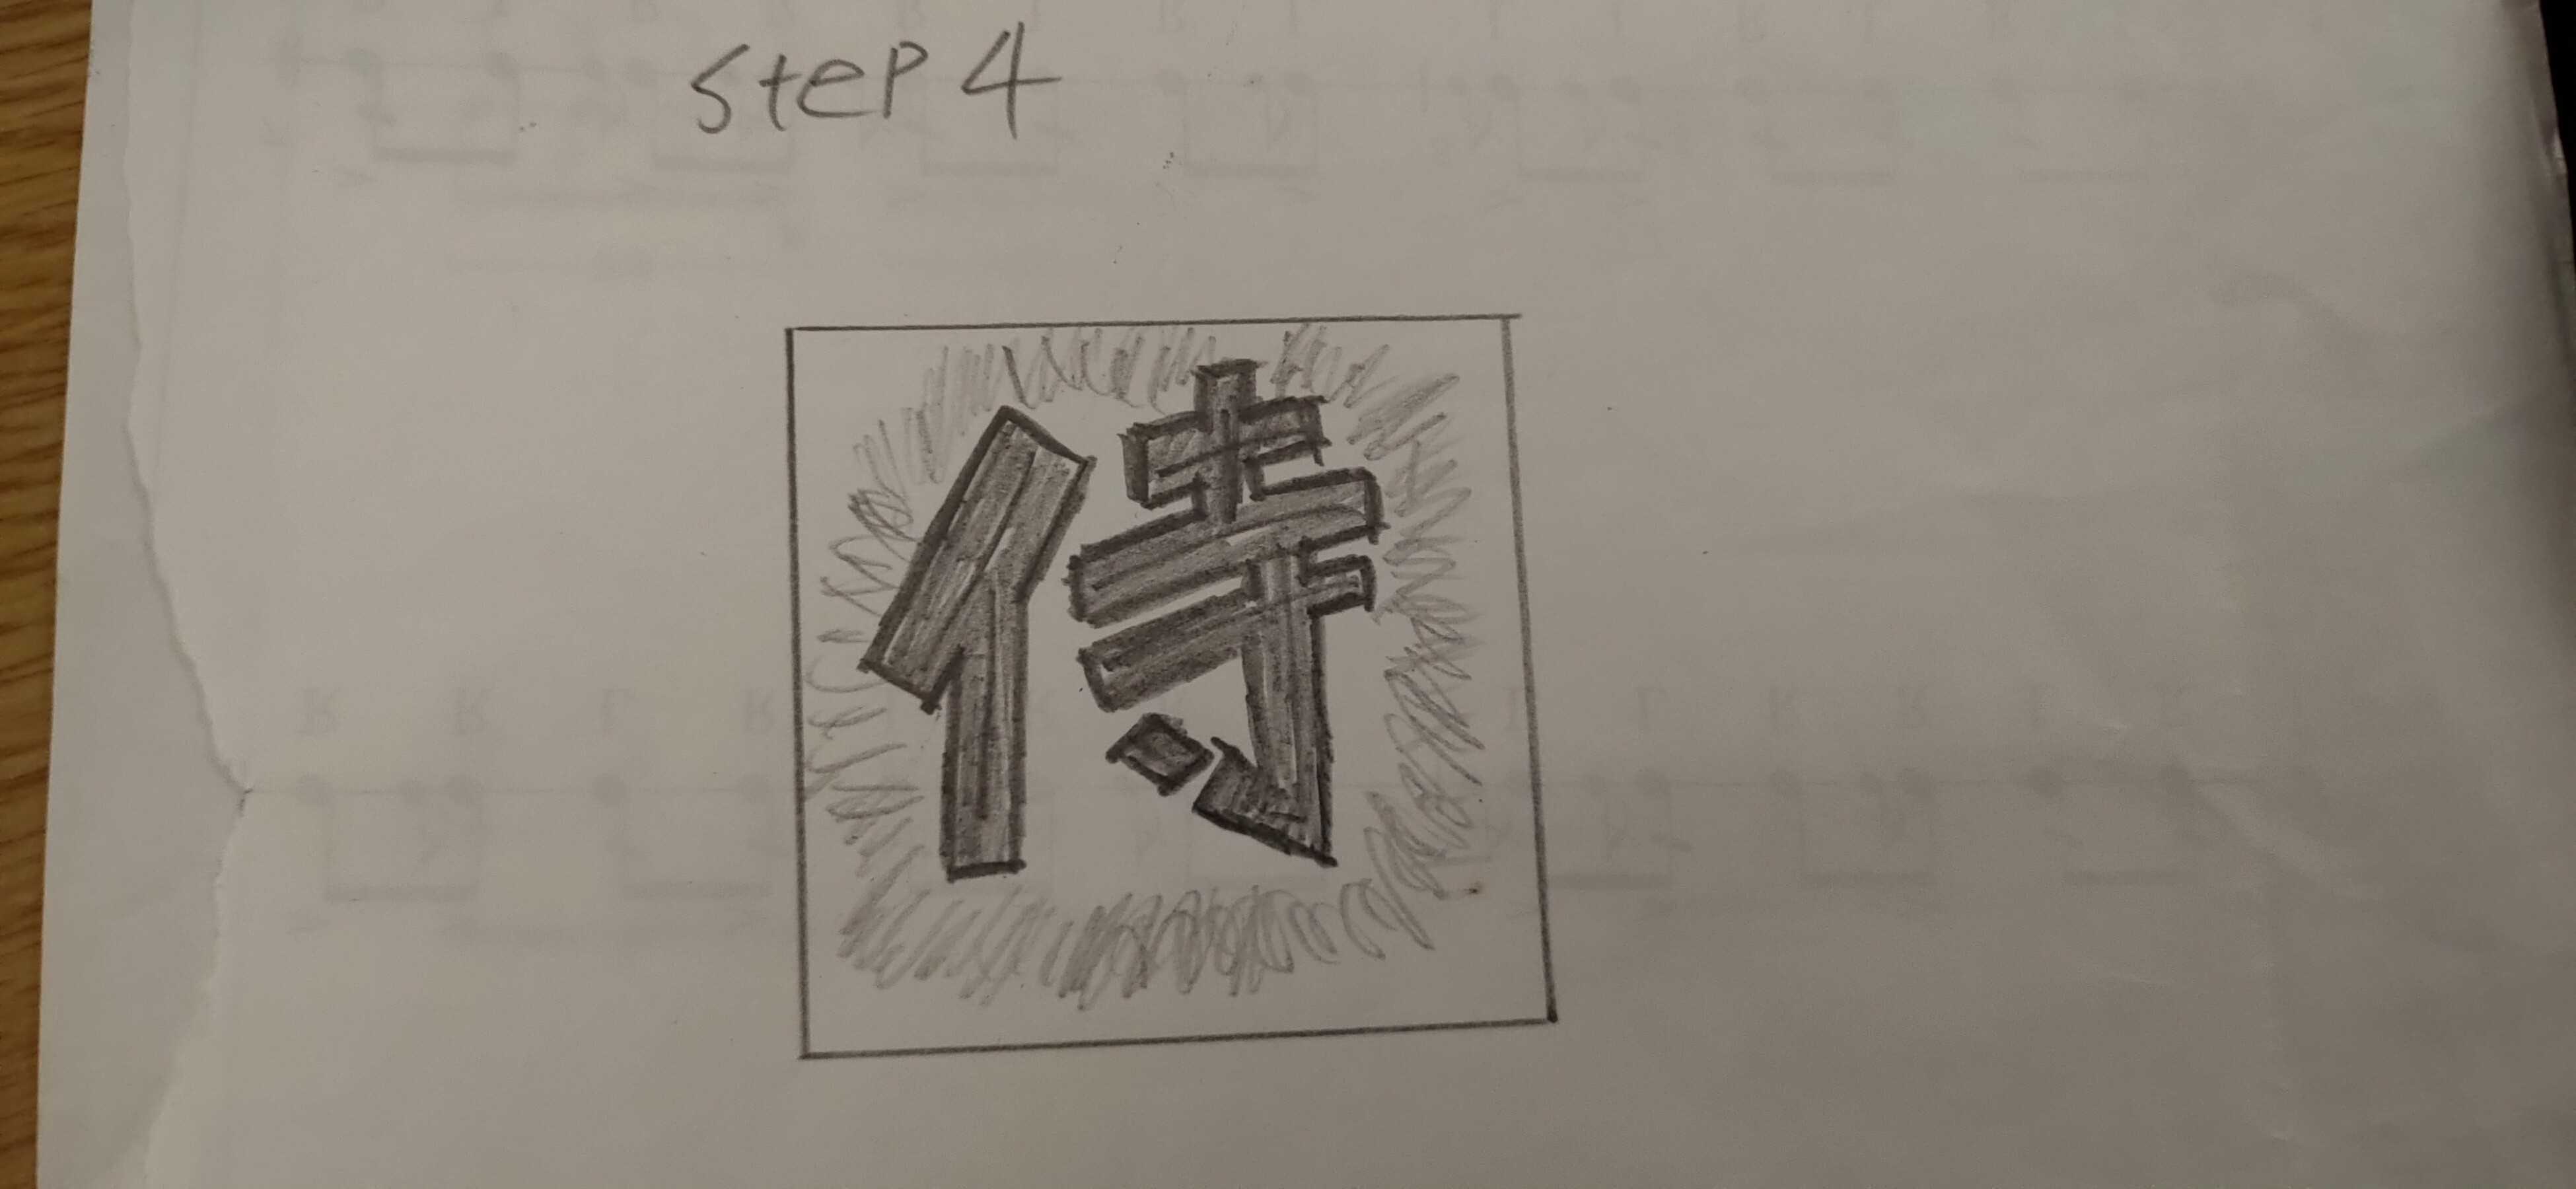 step 4
侍